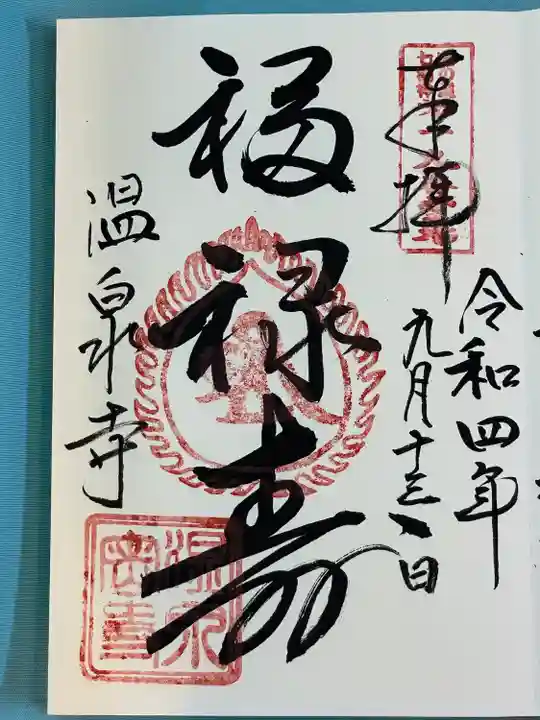 奉拝
令和四年
九月十三日
福禄寿
温泉寺